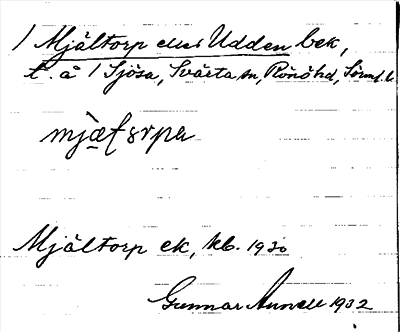 / Mjältorp eller Udden bek,
t. å / Sjösa, Svärta sn, Rönöhd, Sörml. l.
Mjältorp ek, kb. 1930
Gunnar 1932